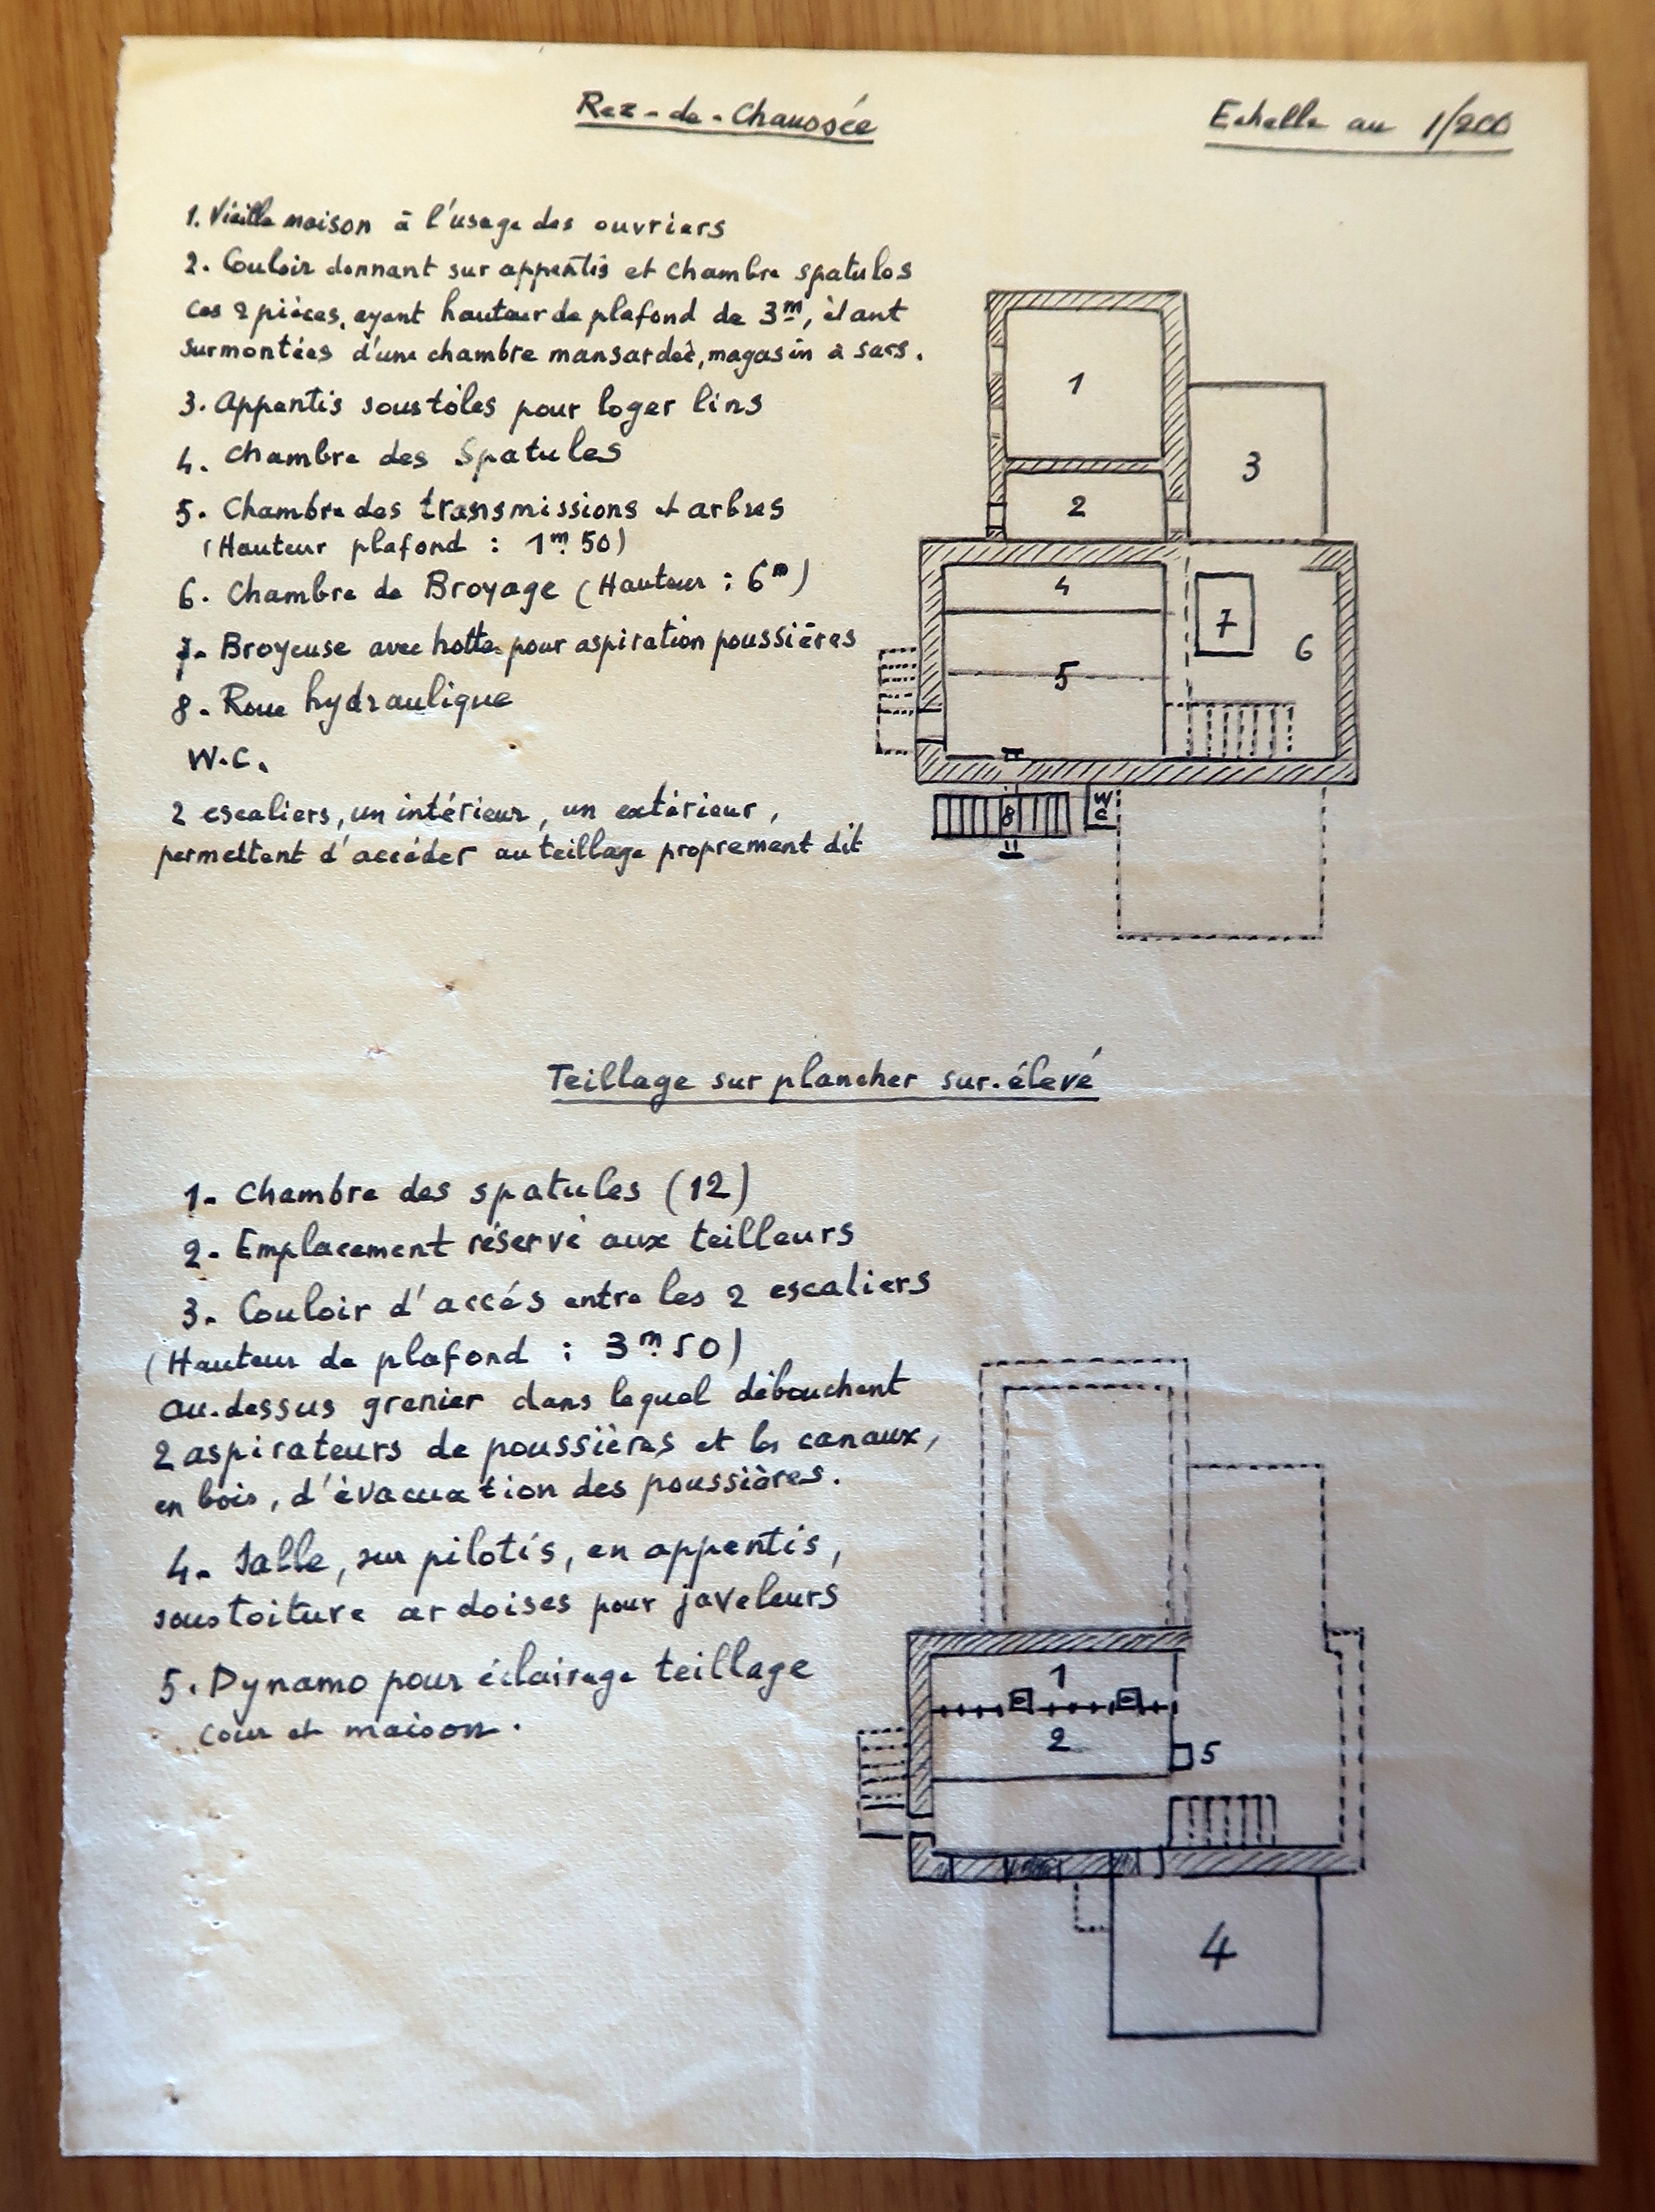 Rez-de-Chaussée
Echelle au 1/200
1. Vieille maison à l'usage des ouvriers
2. Couloir donnant sur appentis et chambre spatules
ces 2 pièces, ayant hauteur de plafond de 3m, étant
surmontées d'une chambre mansardée, magasin à sacs.
3. Appentis sous tôles pour loger lins
4. Chambre des Spatules
5. Chambre des transmissions et arbres
(Hauteur plafond : 1m.50)
6. Chambre de Broyage (Hauteur : 6m)
7- Broyeuse avec hotte pour aspiration poussières
8. Roue hydraulique
W.C.
2 escaliers, un intérieur, un extérieur,
permettent d'accéder au teillage proprement dit
1
2
3
4
5
6
7
8
WC
Teillage sur plancher sur-élevé
1- Chambre des spatules (12)
2- Emplacement réservé aux teilleurs
3- Couloir d'accés entre les 2 escaliers
(Hauteur de plafond : 3m.50)
au-dessus grenier dans lequel débouchent
2 aspirateurs de poussières et les canaux,
en bois, d'évacuation des poussières.
4- Salle, sur pilotis, en appentis,
sous toiture ardoises pour javeleurs
5. Dynamo pour éclairage teillage
cour et maison.
1
2
5
4